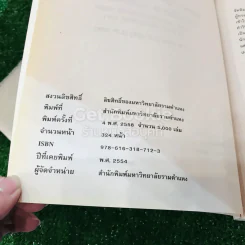 สงวนลิขสิทธิ์ ลิขสิทธิ์ของมหาวิทยาลัยรามคำแหง
พิมพ์ที่ สำนักพิมพ์มหาวิทยาลัยรามคำแหง
พิมพ์ครั้งที่ 4 พ.ศ. 2558 จำนวน 5,000 เล่ม
จำนวนหน้า 324 หน้า
ISBN 978-616-318-712-3
ปีที่เคยพิมพ์ พ.ศ. 2554
ผู้จัดจำหน่าย สำนักพิมพ์มหาวิทยาลัยรามคำแหง